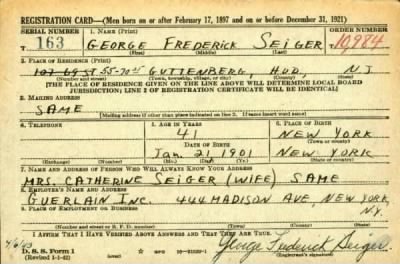 REGISTRATION CARD—(Men born on or after February 17, 1897 and on or before December 31, 1921)
SERIAL NUMBER 1. NAME (Print) ORDER NUMBER
T 163 GEORGE FREDERICK SEIGER T 10,984
(First) (Middle) (Last)
2. PLACE OF RESIDENCE (Print)
107 68 ST 55-70 ST GUTTENBERG, HUD, NJ
(Number and street) (Town, township, village, or city) (County) (State)
[THE PLACE OF RESIDENCE GIVEN ON THE LINE ABOVE WILL DETERMINE LOCAL BOARD
JURISDICTION; LINE 2 OF REGISTRATION CERTIFICATE WILL BE IDENTICAL]
3. MAILING ADDRESS
SAME
[Mailing address if other than place indicated on line 2. If same insert word same]
4. TELEPHONE 5. AGE IN YEARS 6. PLACE OF BIRTH
41 NEW YORK
DATE OF BIRTH (Town or county)
Jan. 21 1901 NEW YORK
(Exchange) (Number) (Mo.) (Day) (Yr.) (State or country)
7. NAME AND ADDRESS OF PERSON WHO WILL ALWAYS KNOW YOUR ADDRESS
MRS. CATHERINE SEIGER (WIFE) SAME
8. EMPLOYER'S NAME AND ADDRESS
GUERLAIN INC. 444 MADISON AVE, NEW YORK,
9. PLACE OF EMPLOYMENT OR BUSINESS N.Y.
(Number and street or R. F. D. number) (Town) (County) (State)
I AFFIRM THAT I HAVE VERIFIED ABOVE ANSWERS AND THAT THEY ARE TRUE.
D. S. S. Form 1 George Frederick Seiger
(Revised 1-1-42) GPO (Registrant's signature)